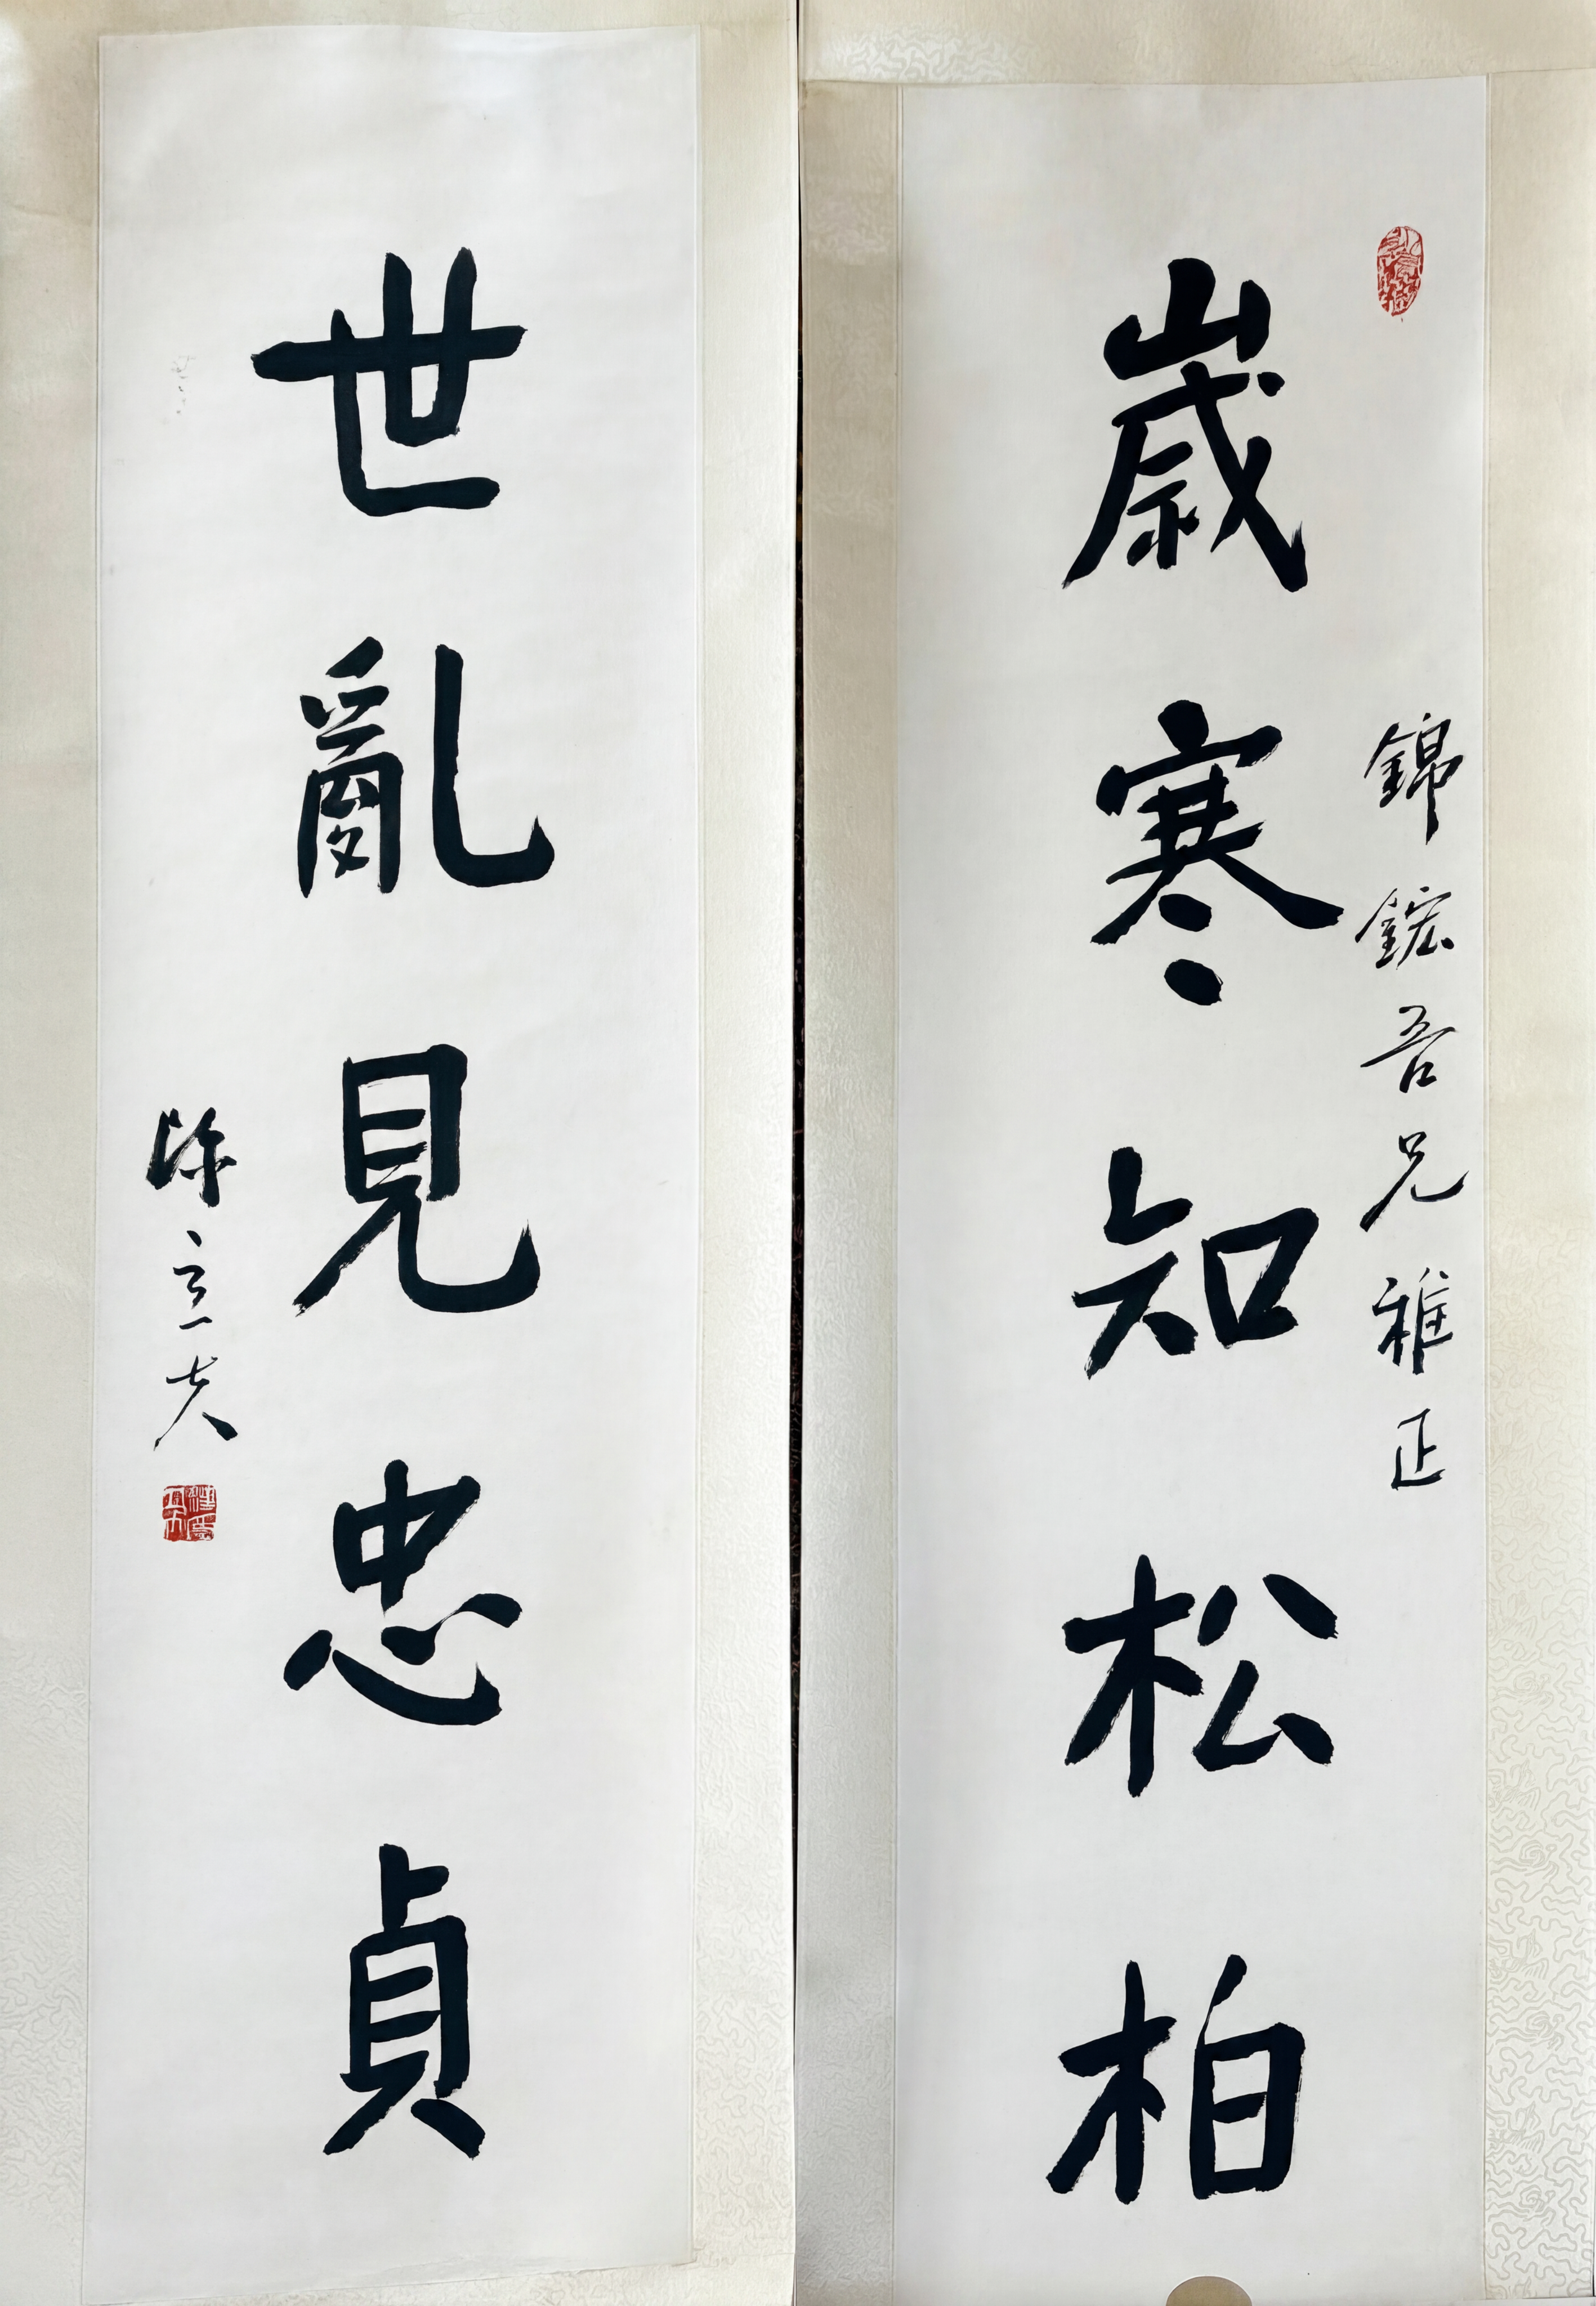 錦鋐吾兄雅正
歲寒知松柏
世亂見忠貞
陳立夫